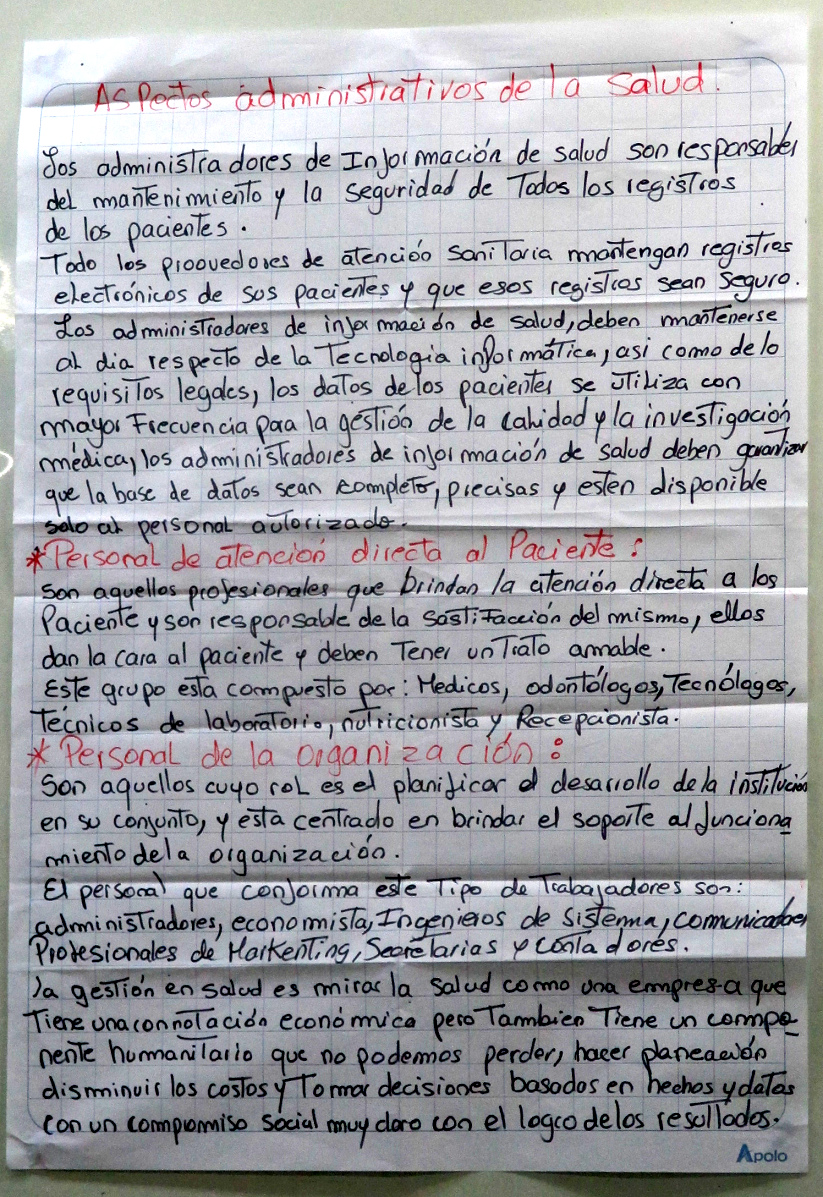 Aspectos administrativos de la salud.
Los administradores de Información de salud son responsables
del mantenimiento y la seguridad de Todos los registros
de los pacientes.
Todo los proovedores de atención sanitaria mantengan registros
electrónicos de sus pacientes y que esos registros sean seguro.
Los administradores de información de salud, deben mantenerse
al dia respecto de la Tecnologia informática, asi como de lo
requisitos legales, los datos de los pacientes se utiliza con
mayor Frecuencia para la gestión de la calidad y la investigación
médica, los administradores de información de salud deben garantizar
que la base de datos sean completo, precisas y esten disponible
solo al personal autorizado.
* Personal de atención directa al Paciente :
Son aquellos profesionales que brindan la atención directa a los
Paciente y son responsable de la sastifacción del mismo, ellos
dan la cara al paciente y deben Tener un Trato amable.
Este grupo esta compuesto por: Medicos, odontólogos, Tecnólogos,
Técnicos de laboratorio, nutricionista y Recepcionista.
* Personal de la organización :
Son aquellos cuyo rol es el planificar el desarrollo de la institución
en su conjunto, y esta centrado en brindar el soporte al funciona
miento de la organización.
El personal que conforma este Tipo de Trabajadores son:
administradores, economista, Ingenieros de Sistema, comunicadores
Profesionales de Markenting, Secretarias y contadores.
la gestión en salud es mirar la salud como una empresa que
Tiene una connotación económica pero Tambien Tiene un compo
nente humanitario que no podemos perder, hacer planeación
disminuir los costos y Tomar decisiones basados en hechos y datos
con un compromiso social muy claro con el logro de los resultados.
Apolo